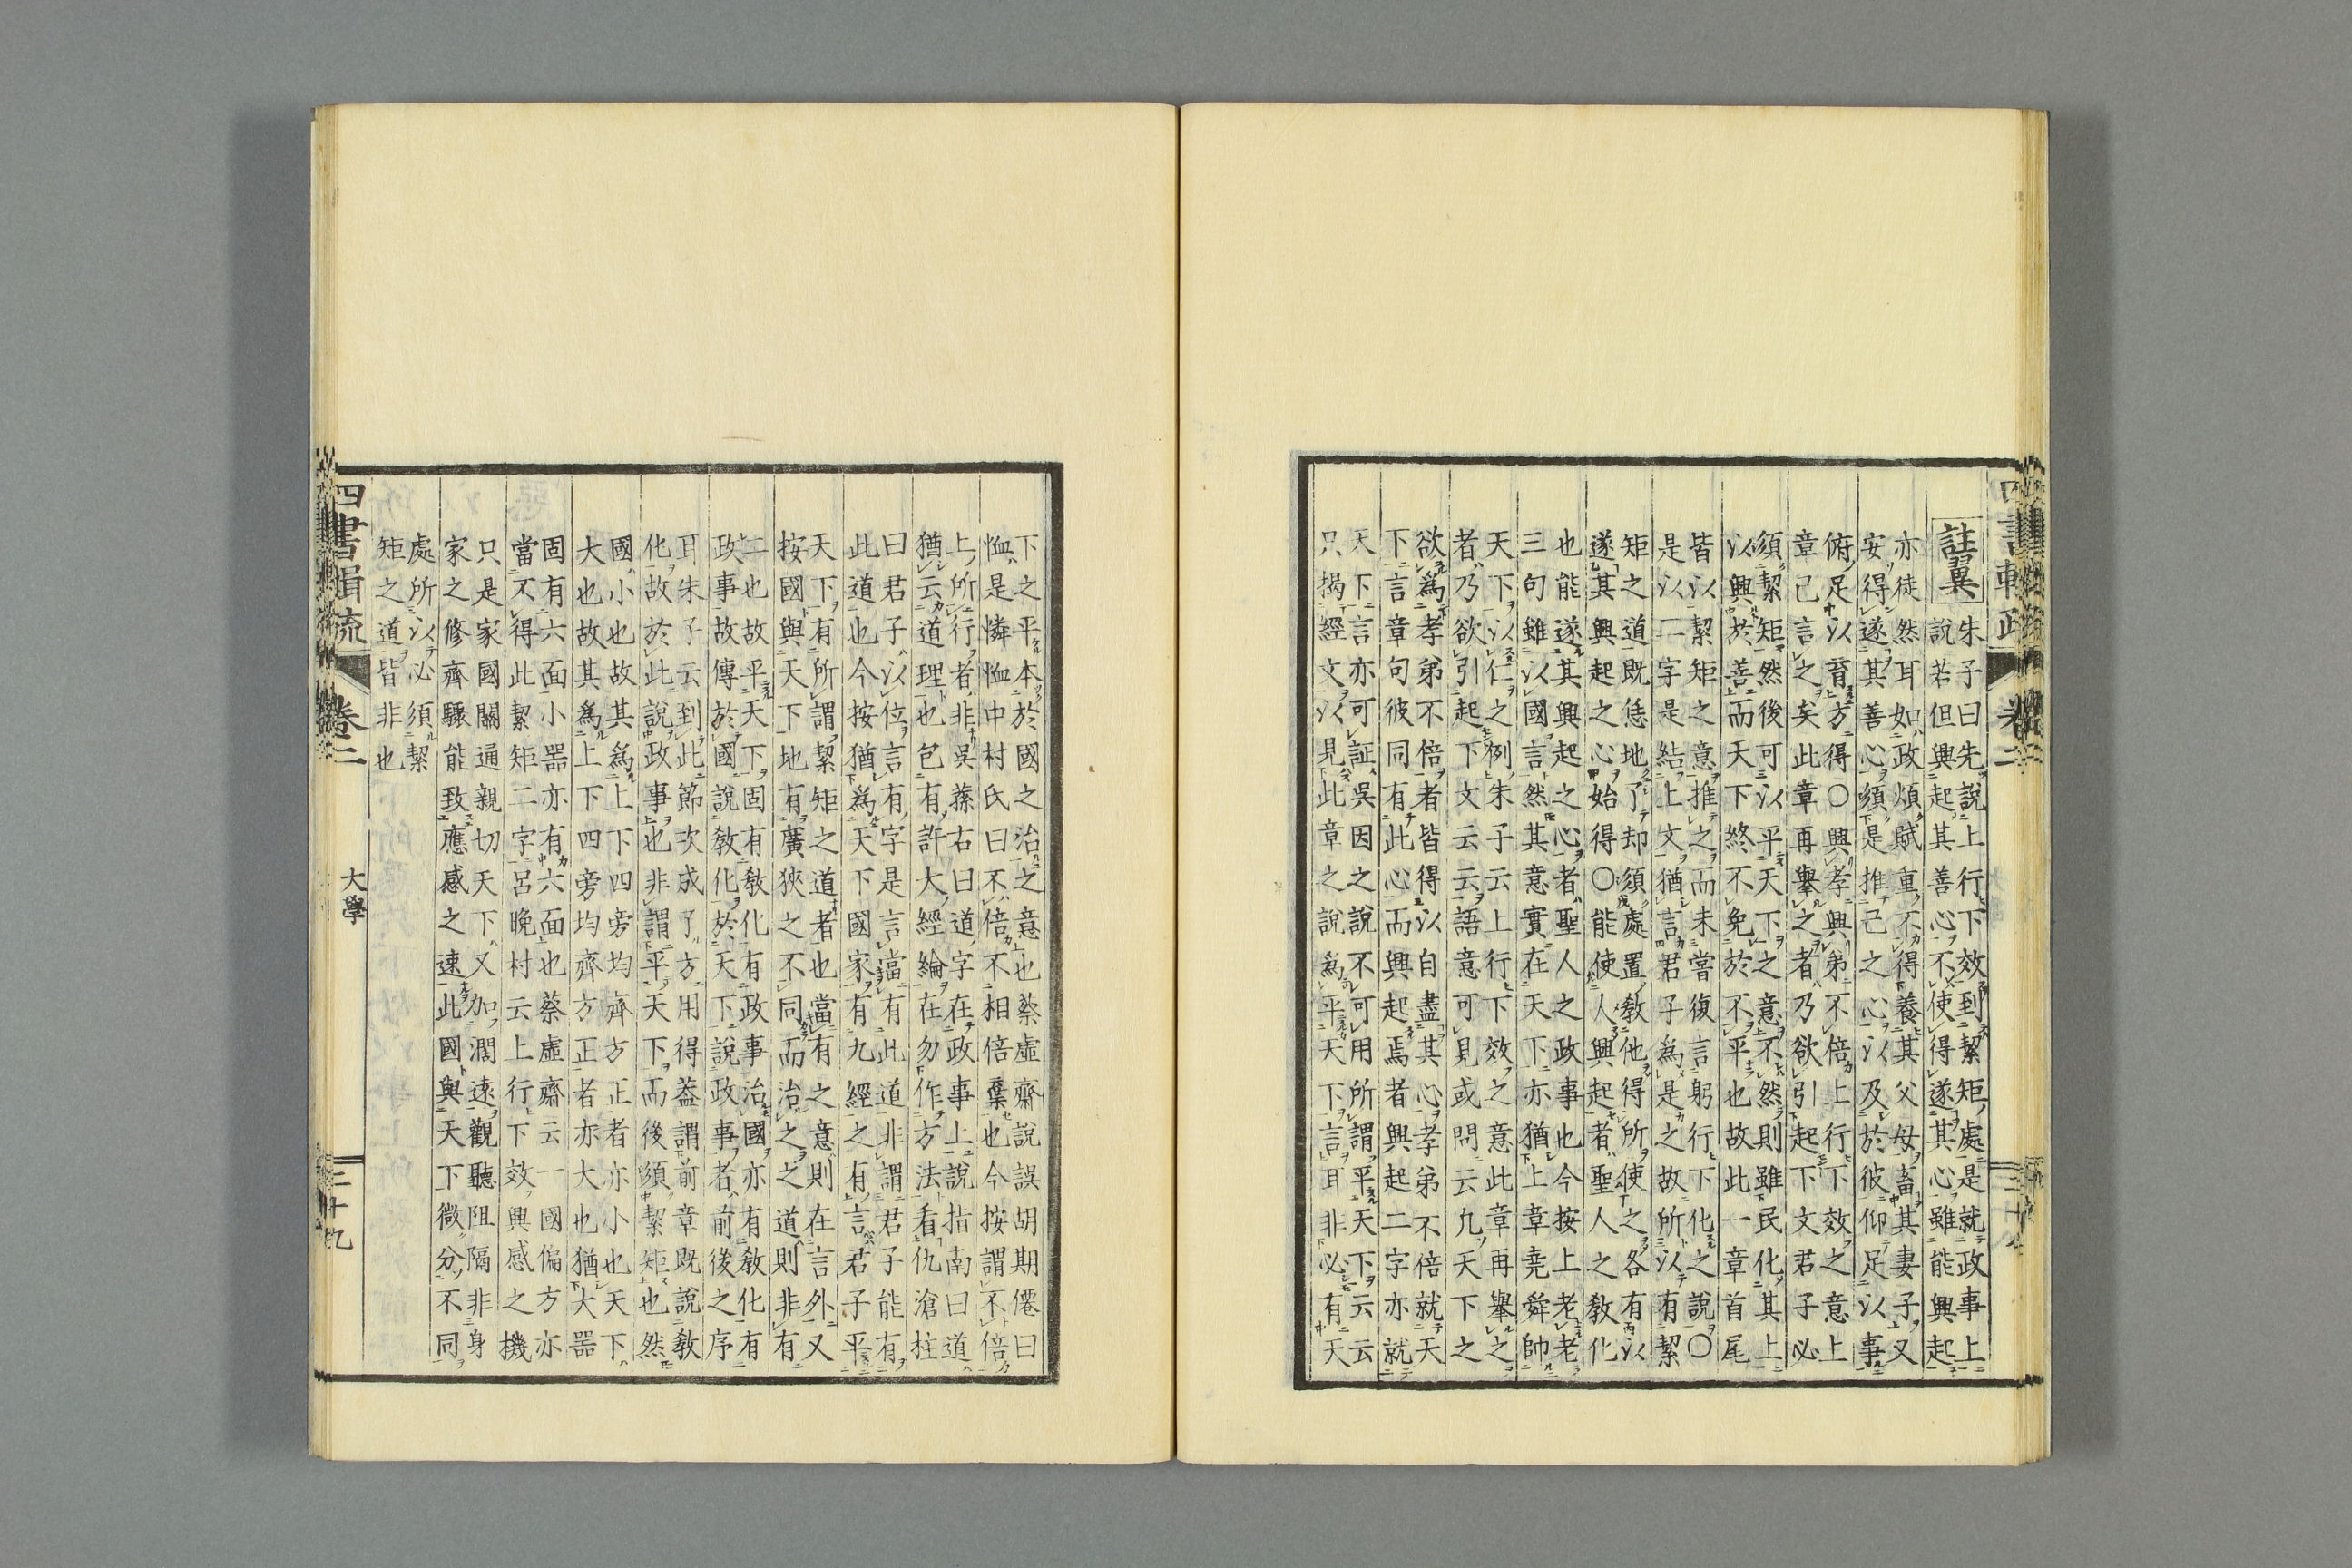 註翼
朱子曰先說上行下效到絜矩處是就政事上
說若但興起其善心不使得遂其心雖能興起
亦徒然耳如政煩賦重不得養其父母畜其妻子又
安得遂其善心須是推己之心以及於彼仰足以事
俯足以育方得〇興孝興弟不倍上行下效之意上
章已言之矣此章再舉之者乃欲引起下文君子必
須絜矩然後可以平天下之意不然則雖民化其上
以興於善而天下終不免於不平也故此一章首尾
皆以絜矩之意推之而未嘗復言躬行下化之說〇
是以二字是結上文猶言君子為是之故所以有絜
矩之道既恁地了却須處置教他得所使之各有以
遂其興起之心始得〇能使人興起者聖人之教化
也能遂其興起之心者聖人之政事也今按上老老
三句雖以國言然其意實在天下亦猶上章堯舜帥
天下以仁之例朱子云上行下效之意此章再舉之
者乃欲引起下文云云語意可見或問云凡天下之
欲為孝弟不倍者皆得以自盡其心孝弟不倍就天
下言章句彼同有此心而興起焉者興起二字亦就
天下言亦可証吳因之說不可用所謂平天下云云
只揭經文以見此章之說為平天下言耳非必有天
下之平本於國之治之意也蔡虛齋說誤胡期僊曰
恤是憐恤中村氏曰不倍不相倍棄也今按謂不倍
上所行者非吳蓀右曰道字在政事上說指南曰道
猶云道理也包有許大經綸在勿作方法看仇滄柱
曰君子以位言有字是言當有此道非謂君子能有
此道也今按猶為天下國家有九經之有言君子平
天下有所謂絜矩之道者也當有之意則在言外又
按國與天下地有廣狹之不同而治之之道則非有
二也故平天下固有教化有政事治國亦有教化有
政事故傳於國說教化於天下說政事者前後之序
耳朱子云到此節次成了方用得蓋謂前章既說教
化故於此說政事也非謂平天下而後須絜矩也然
國小也故其為上下四旁均齊方正者亦小也天下
大也故其為上下四旁均齊方正者亦大也猶大器
固有六面小器亦有六面也蔡虛齋云一國偏方亦
當不得此絜矩二字呂晚村云上行下效興感之機
只是家國關通親切天下又加濶遠觀聽阻隔非身
家之修齊驟能致應感之速此國與天下微分不同
處所以必須絜
矩之道皆非也
四書輯疏
卷二
大學
三十九